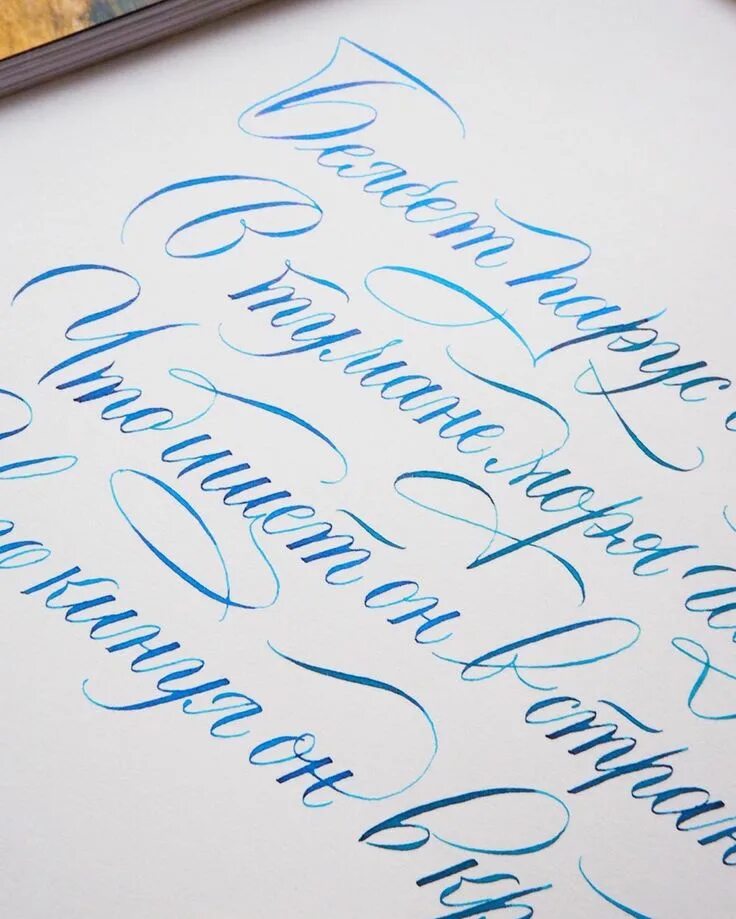 Белеет парус
В тумане моря
Что ищет он в стран
то кинул он в кр